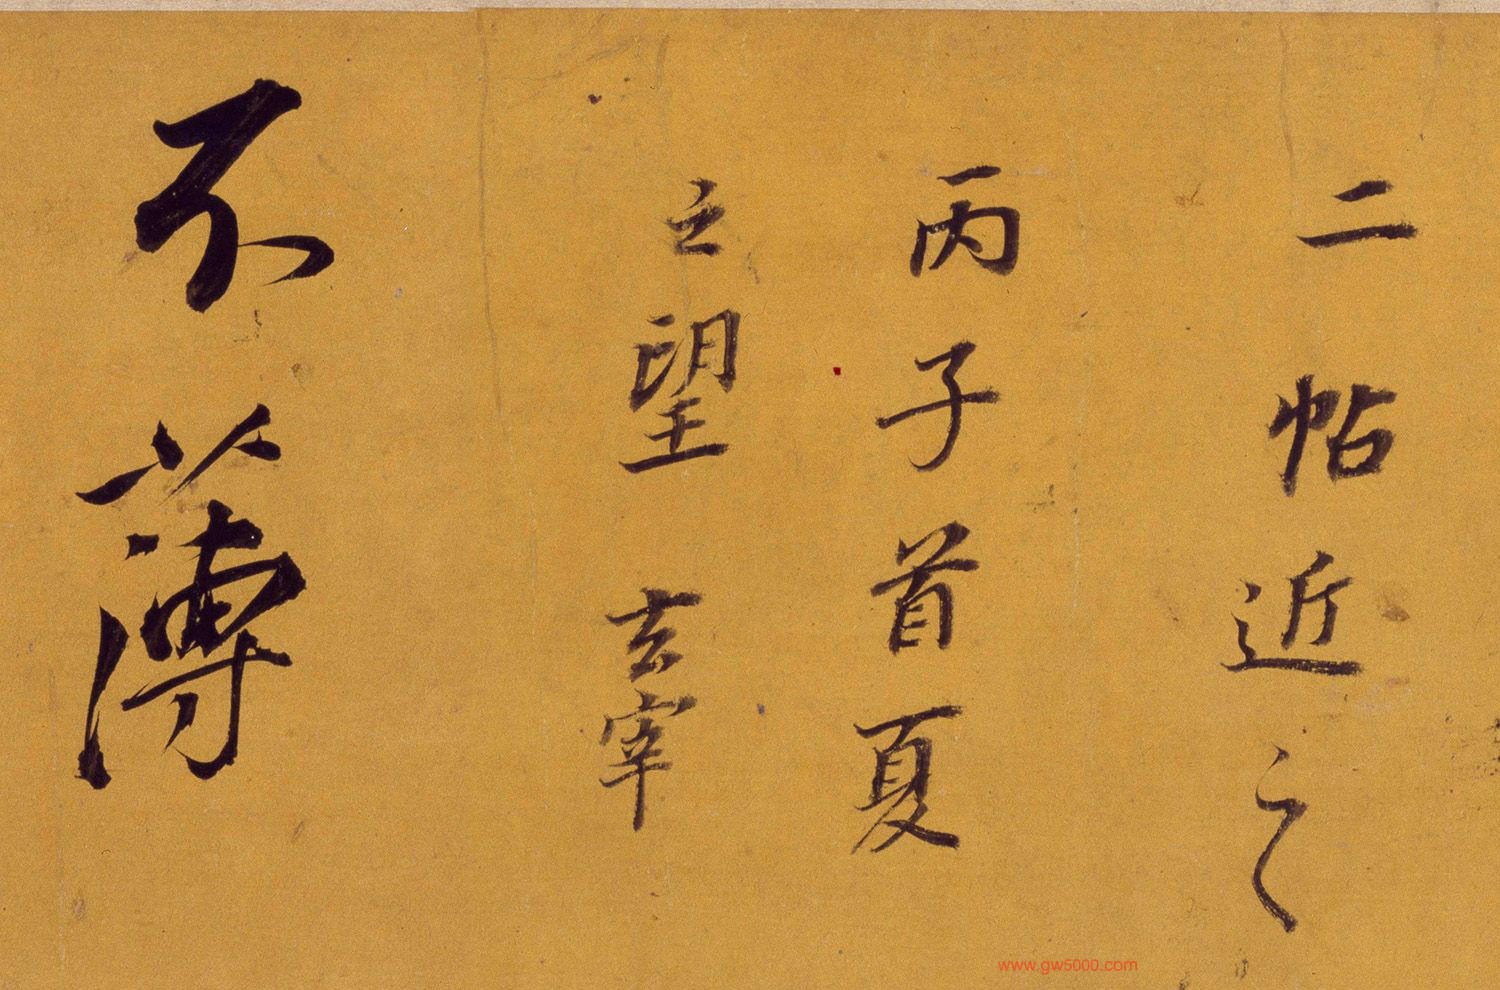 二帖近之
丙子首夏
之望 玄宰
不薄
www.gw5000.com